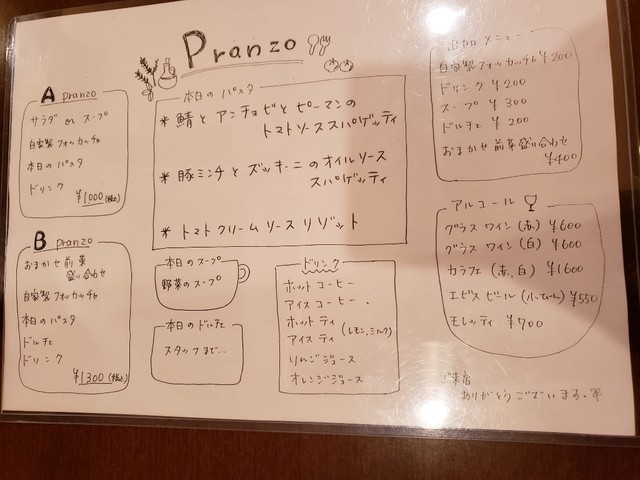 Pranzo
A pranzo
サラダ or スープ
自家製フォッカッチャ
本日のパスタ
ドリンク
¥1000(税込)
B pranzo
おまかせ前菜
盛り合わせ
自家製フォッカッチャ
本日のパスタ
ドルチェ
ドリンク
¥1300(税込)
本日のパスタ
*鯖とアンチョビとピーマンの
トマトソーススパゲッティ
*豚ミンチとズッキーニのオイルソース
スパゲッティ
*トマトクリームソースリゾット
本日のスープ
野菜のスープ
本日のドルチェ
スタッフまで…
ドリンク
ホットコーヒー
アイスコーヒー
ホットティ
アイスティ (レモン,ミルク)
りんごジュース
オレンジジュース
追加メニュー
自家製フォッカッチャ ¥200
ドリンク ¥200
スープ ¥300
ドルチェ ¥200
おまかせ前菜盛り合わせ
¥400
アルコール
グラスワイン(赤) ¥600
グラスワイン(白) ¥600
カラフェ(赤,白) ¥1600
エビスビール(小びん) ¥550
モレッティ ¥700
ご来店
ありがとうございます。